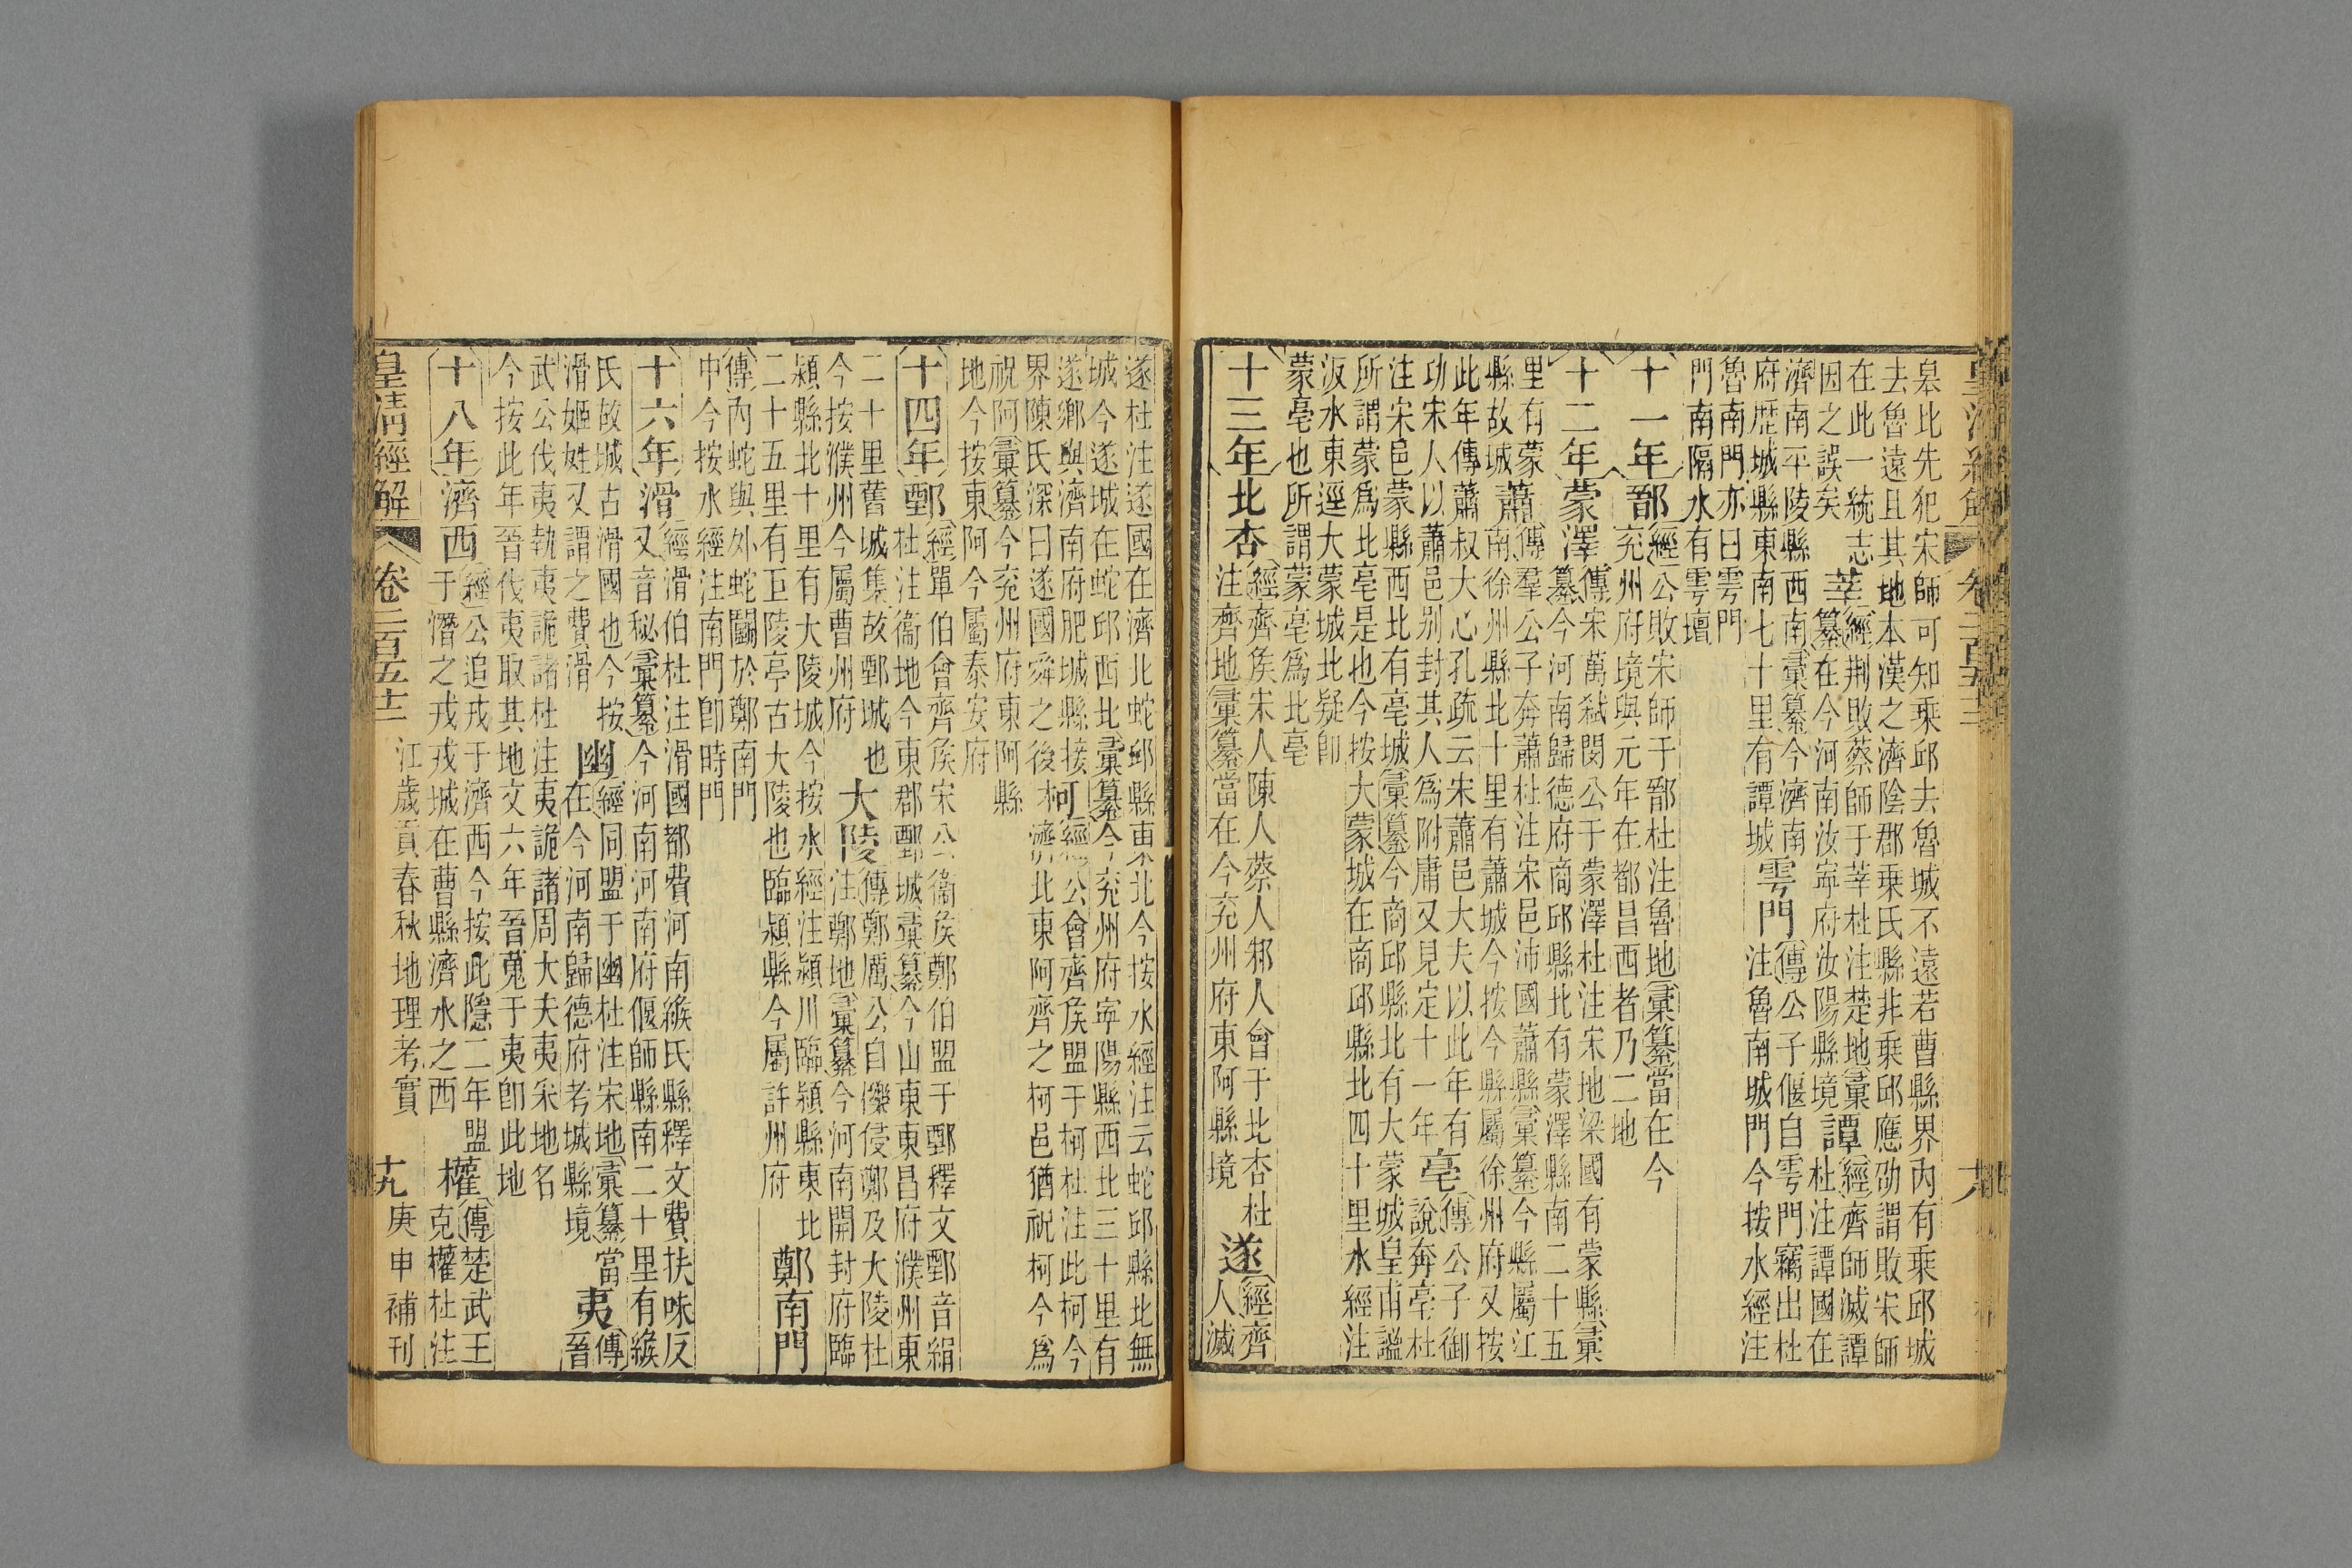 臯比先犯宋師可知乗邱去魯城不遠若曹縣界內有乗邱城去魯遠且其地本漢之濟陰郡乗氏縣非乗邱應劭謂敗宋師
在此一統志因之誤矣莘經荆敗蔡師于莘杜注楚地彙纂在今河南汝寧府汝陽縣境譚經齊師滅譚杜注譚國在
濟南平陵縣西南彙纂今濟南府歴城縣東南七十里有譚城雩門傳公子偃自雩門竊出杜注魯南城門今按水經注
魯南門亦曰雩門門南隔水有雩壇
十一年鄑經公敗宋師于鄑杜注魯地彙纂當在今兖州府境與元年在都昌西者乃二地
十二年蒙澤傳宋萬弑閔公于蒙澤杜注宋地梁國有蒙縣彙纂今河南歸德府商邱縣北有蒙澤縣南二十五
里有蒙縣故城蕭傳羣公子奔蕭杜注宋邑沛國蕭縣彙纂今縣屬江南徐州縣北十里有蕭城今按今縣屬徐州府又按
此年傳蕭叔大心孔疏云宋蕭邑大夫以此年有功宋人以蕭邑别封其人爲附庸又見定十一年亳傳公子御說奔亳杜
注宋邑蒙縣西北有亳城彙纂今商邱縣北有大蒙城皇甫謐所謂蒙爲北亳是也今按大蒙城在商邱縣北四十里水經注
汳水東逕大蒙城北疑卽蒙亳也所謂蒙亳爲北亳
十三年北杏經齊矦宋人陳人蔡人邾人會于北杏杜注齊地彙纂當在今兖州府東阿縣境遂經齊人滅
遂杜注遂國在濟北蛇邱縣東北今按水經注云蛇邱縣北無城今遂城在蛇邱西北彙纂今兖州府寧陽縣西北三十里有
遂鄉與濟南府肥城縣接界陳氏深曰遂國舜之後柯經公會齊矦盟于柯杜注此柯今濟北東阿齊之柯邑猶祝柯今爲
祝阿彙纂今兖州府東阿縣地今按東阿今屬泰安府
十四年鄄經單伯會齊矦宋公衞矦鄭伯盟于鄄釋文鄄音絹杜注衞地今東郡鄄城彙纂今山東東昌府濮州東
二十里舊城集故鄄城也今按濮州今屬曹州府大陵傳鄭厲公自櫟侵鄭及大陵杜注鄭地彙纂今河南開封府臨
潁縣北十里有大陵城今按水經注潁川臨潁縣東北二十五里有巨陵亭古大陵也臨潁縣今屬許州府鄭南門
傳內蛇與外蛇鬭於鄭南門中今按水經注南門卽時門
十六年滑經滑伯杜注滑國都費河南緱氏縣釋文費扶味反又音秘彙纂今河南河南府偃師縣南二十里有緱
氏故城古滑國也今按滑姬姓又謂之費滑幽經同盟于幽杜注宋地彙纂當在今河南歸德府考城縣境夷傳晉
武公伐夷執夷詭諸杜注夷詭諸周大夫夷采地名今按此年晉伐夷取其地文六年晉蒐于夷卽此地
十八年濟西經公追戎于濟西今按此隱二年盟于潛之戎戎城在曹縣濟水之西權傳楚武王克權杜注
皇清經解 卷二百五十三 江歲貢春秋地理考實 十九 庚申補刊